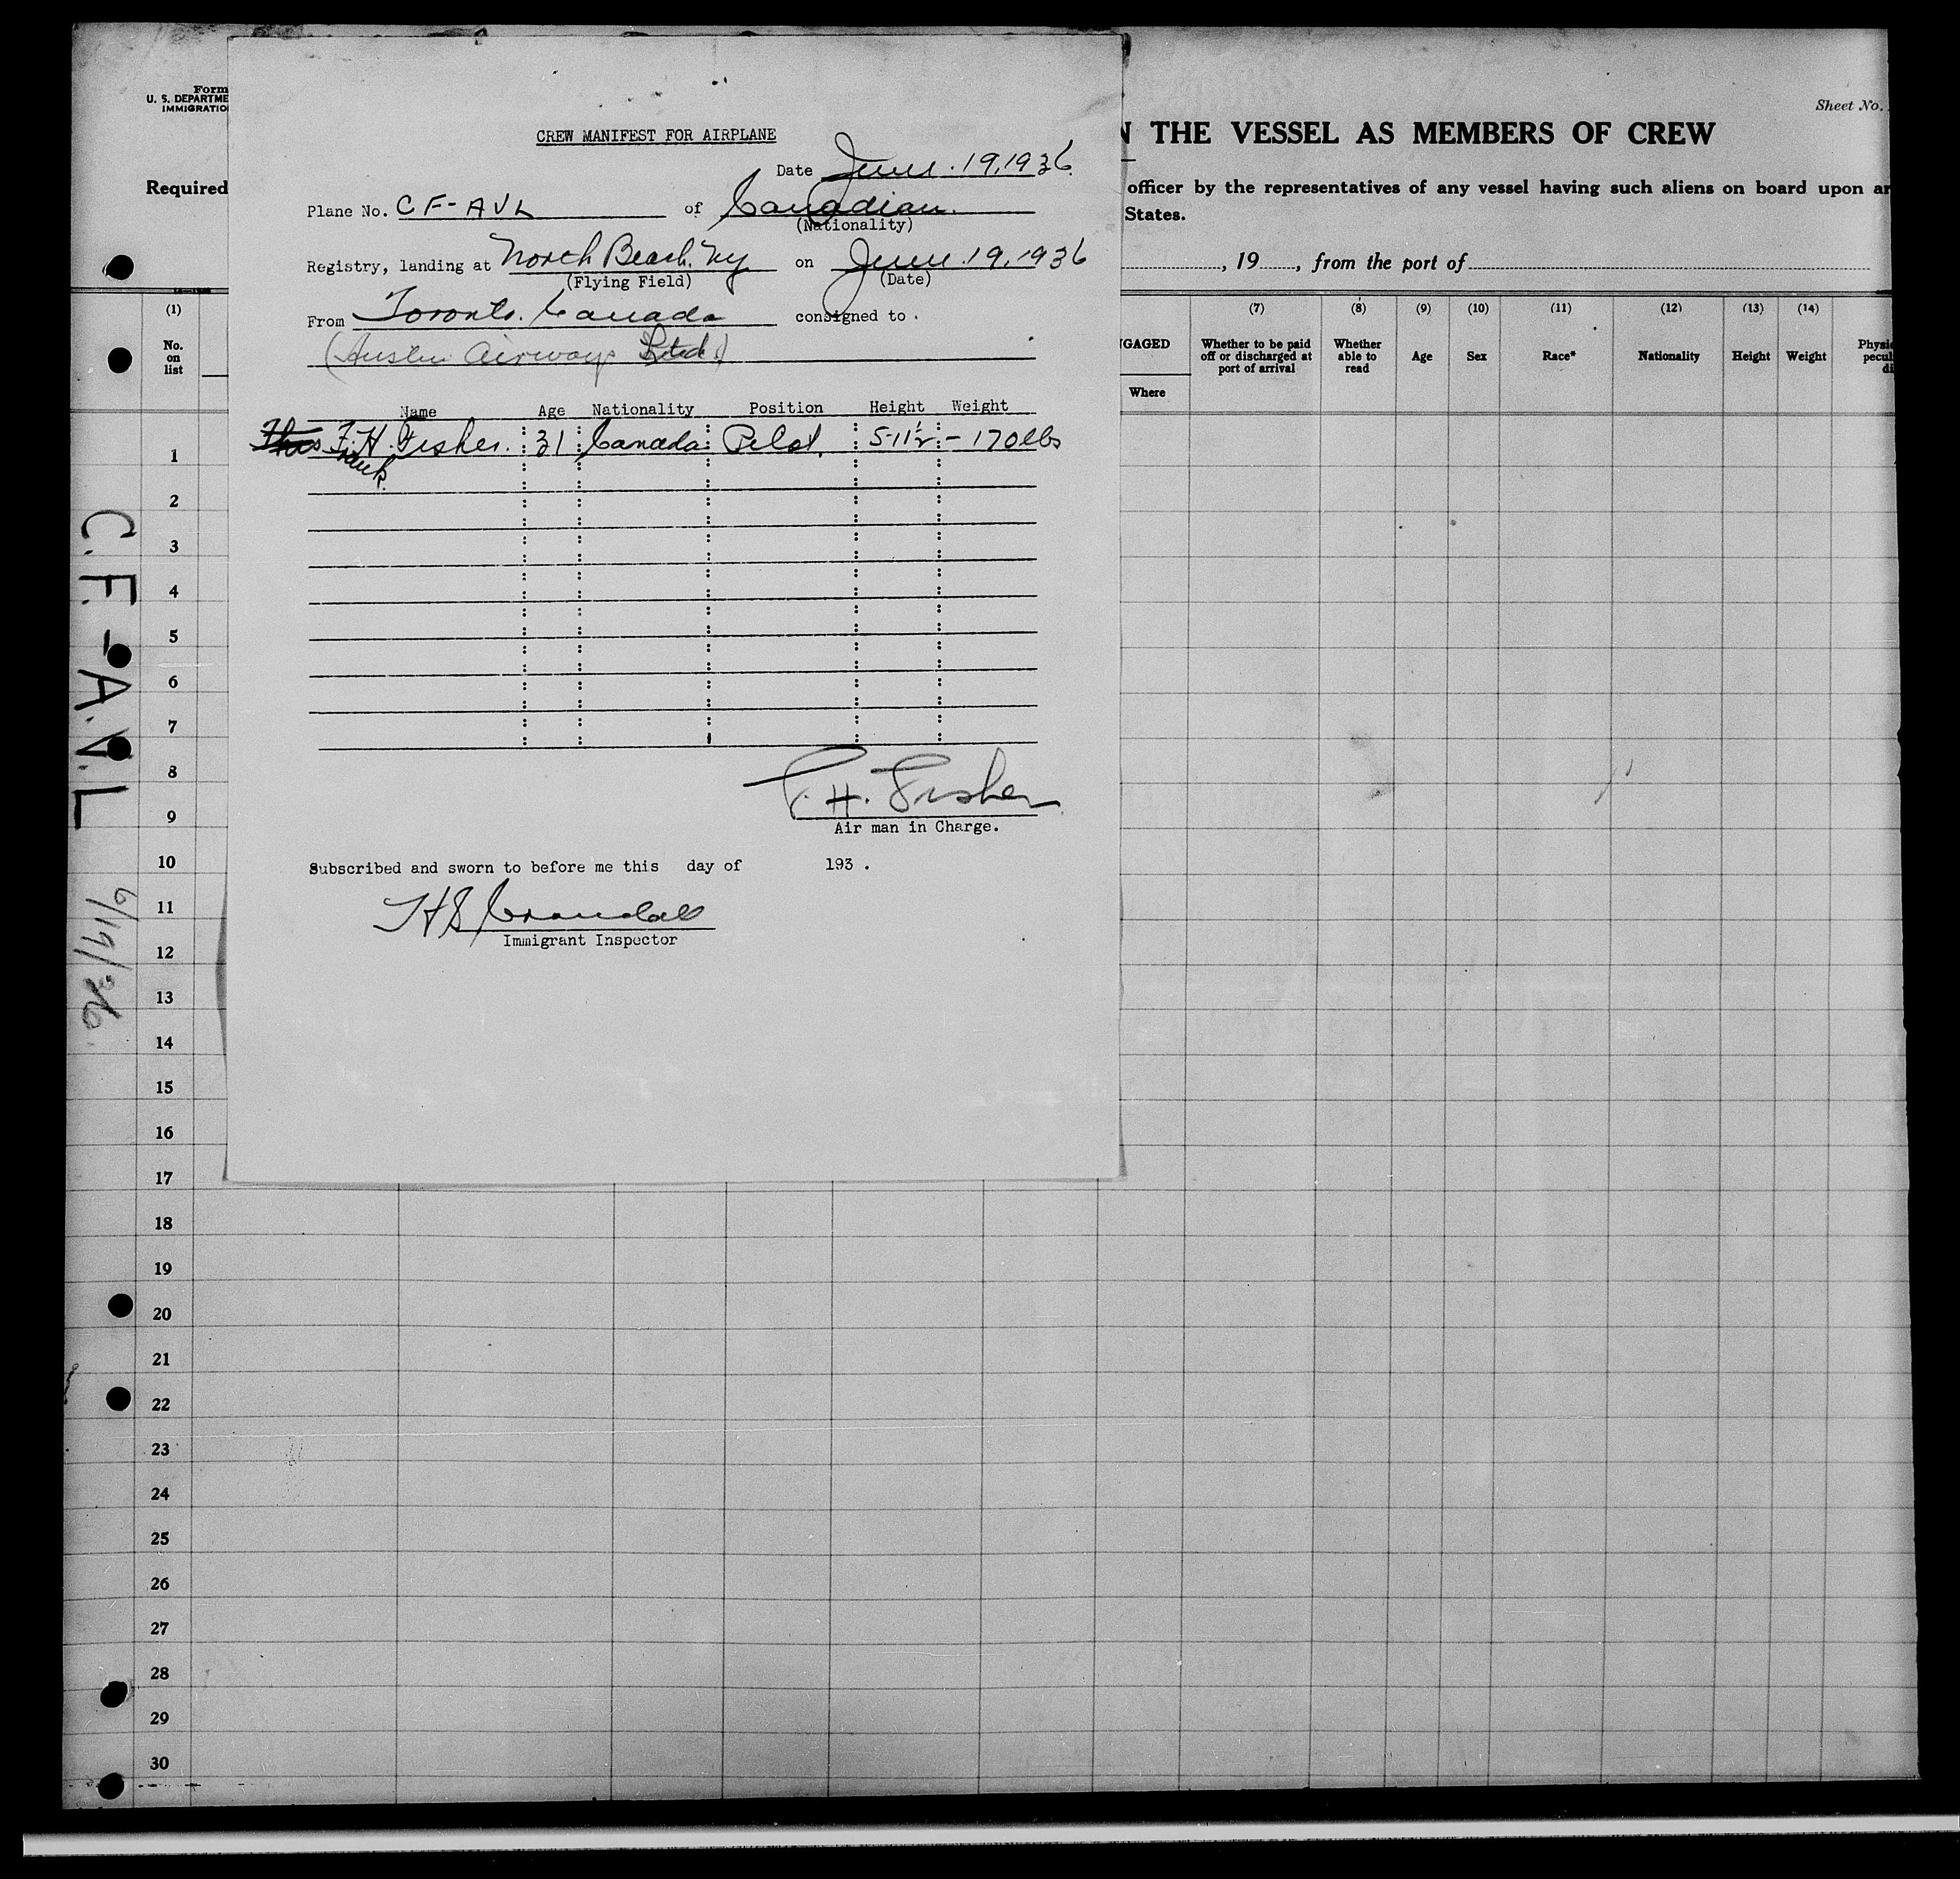 Form
U. S. DEPARTME
IMMIGRATIO
Required
Sheet No.
N THE VESSEL AS MEMBERS OF CREW
officer by the representatives of any vessel having such aliens on board upon ar
States.
, 19 , from the port of
CREW MANIFEST FOR AIRPLANE
Date June. 19, 1936
Plane No. CF-AVL of Canadian.
(Nationality)
Registry, landing at North Beach. NY on June. 19, 1936
(Flying Field) (Date)
From Toronto. Canada consigned to .
(Austin Airways Ltd.)
Name Age Nationality Position Height Weight
Thos F. H. Fisher. 31 Canada Pilot. 5-11½ - 170 lbs
Frank.
F. H. Fisher
Air man in Charge.
Subscribed and sworn to before me this day of 193 .
H S Crandall
Immigrant Inspector
(1) (7) (8) (9) (10) (11) (12) (13) (14)
No. on list
GAGED
Where
Whether to be paid off or discharged at port of arrival
Whether able to read
Age
Sex
Race*
Nationality
Height
Weight
Physic
pecul
di
1
2
3
4
5
6
7
8
9
10
11
12
13
14
15
16
17
18
19
20
21
22
23
24
25
26
27
28
29
30
C.F.-A.V.L
6/19/36.